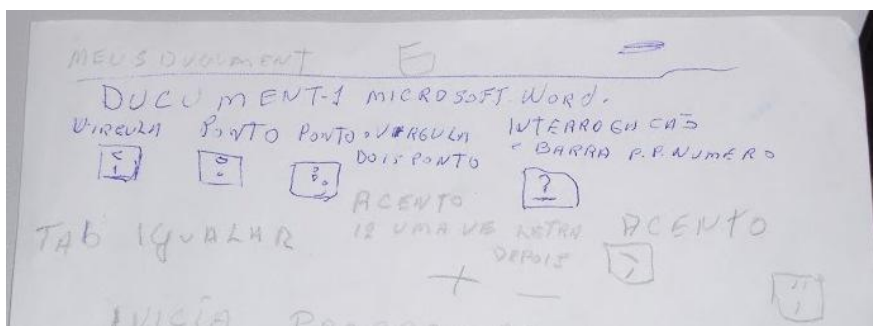 MEUS DUCUMENT
DUCUMENT-1 MICROSOFT WORD.
VIRGULA PONTO PONTO VIRGULA INTERROGACAO
DOIS PONTO BARRA P.P. NUMERO
?
ACENTO
TAB IGUALAR 12 UMA VE LETRA ACENTO
DEPOIS
+ -
INICIA